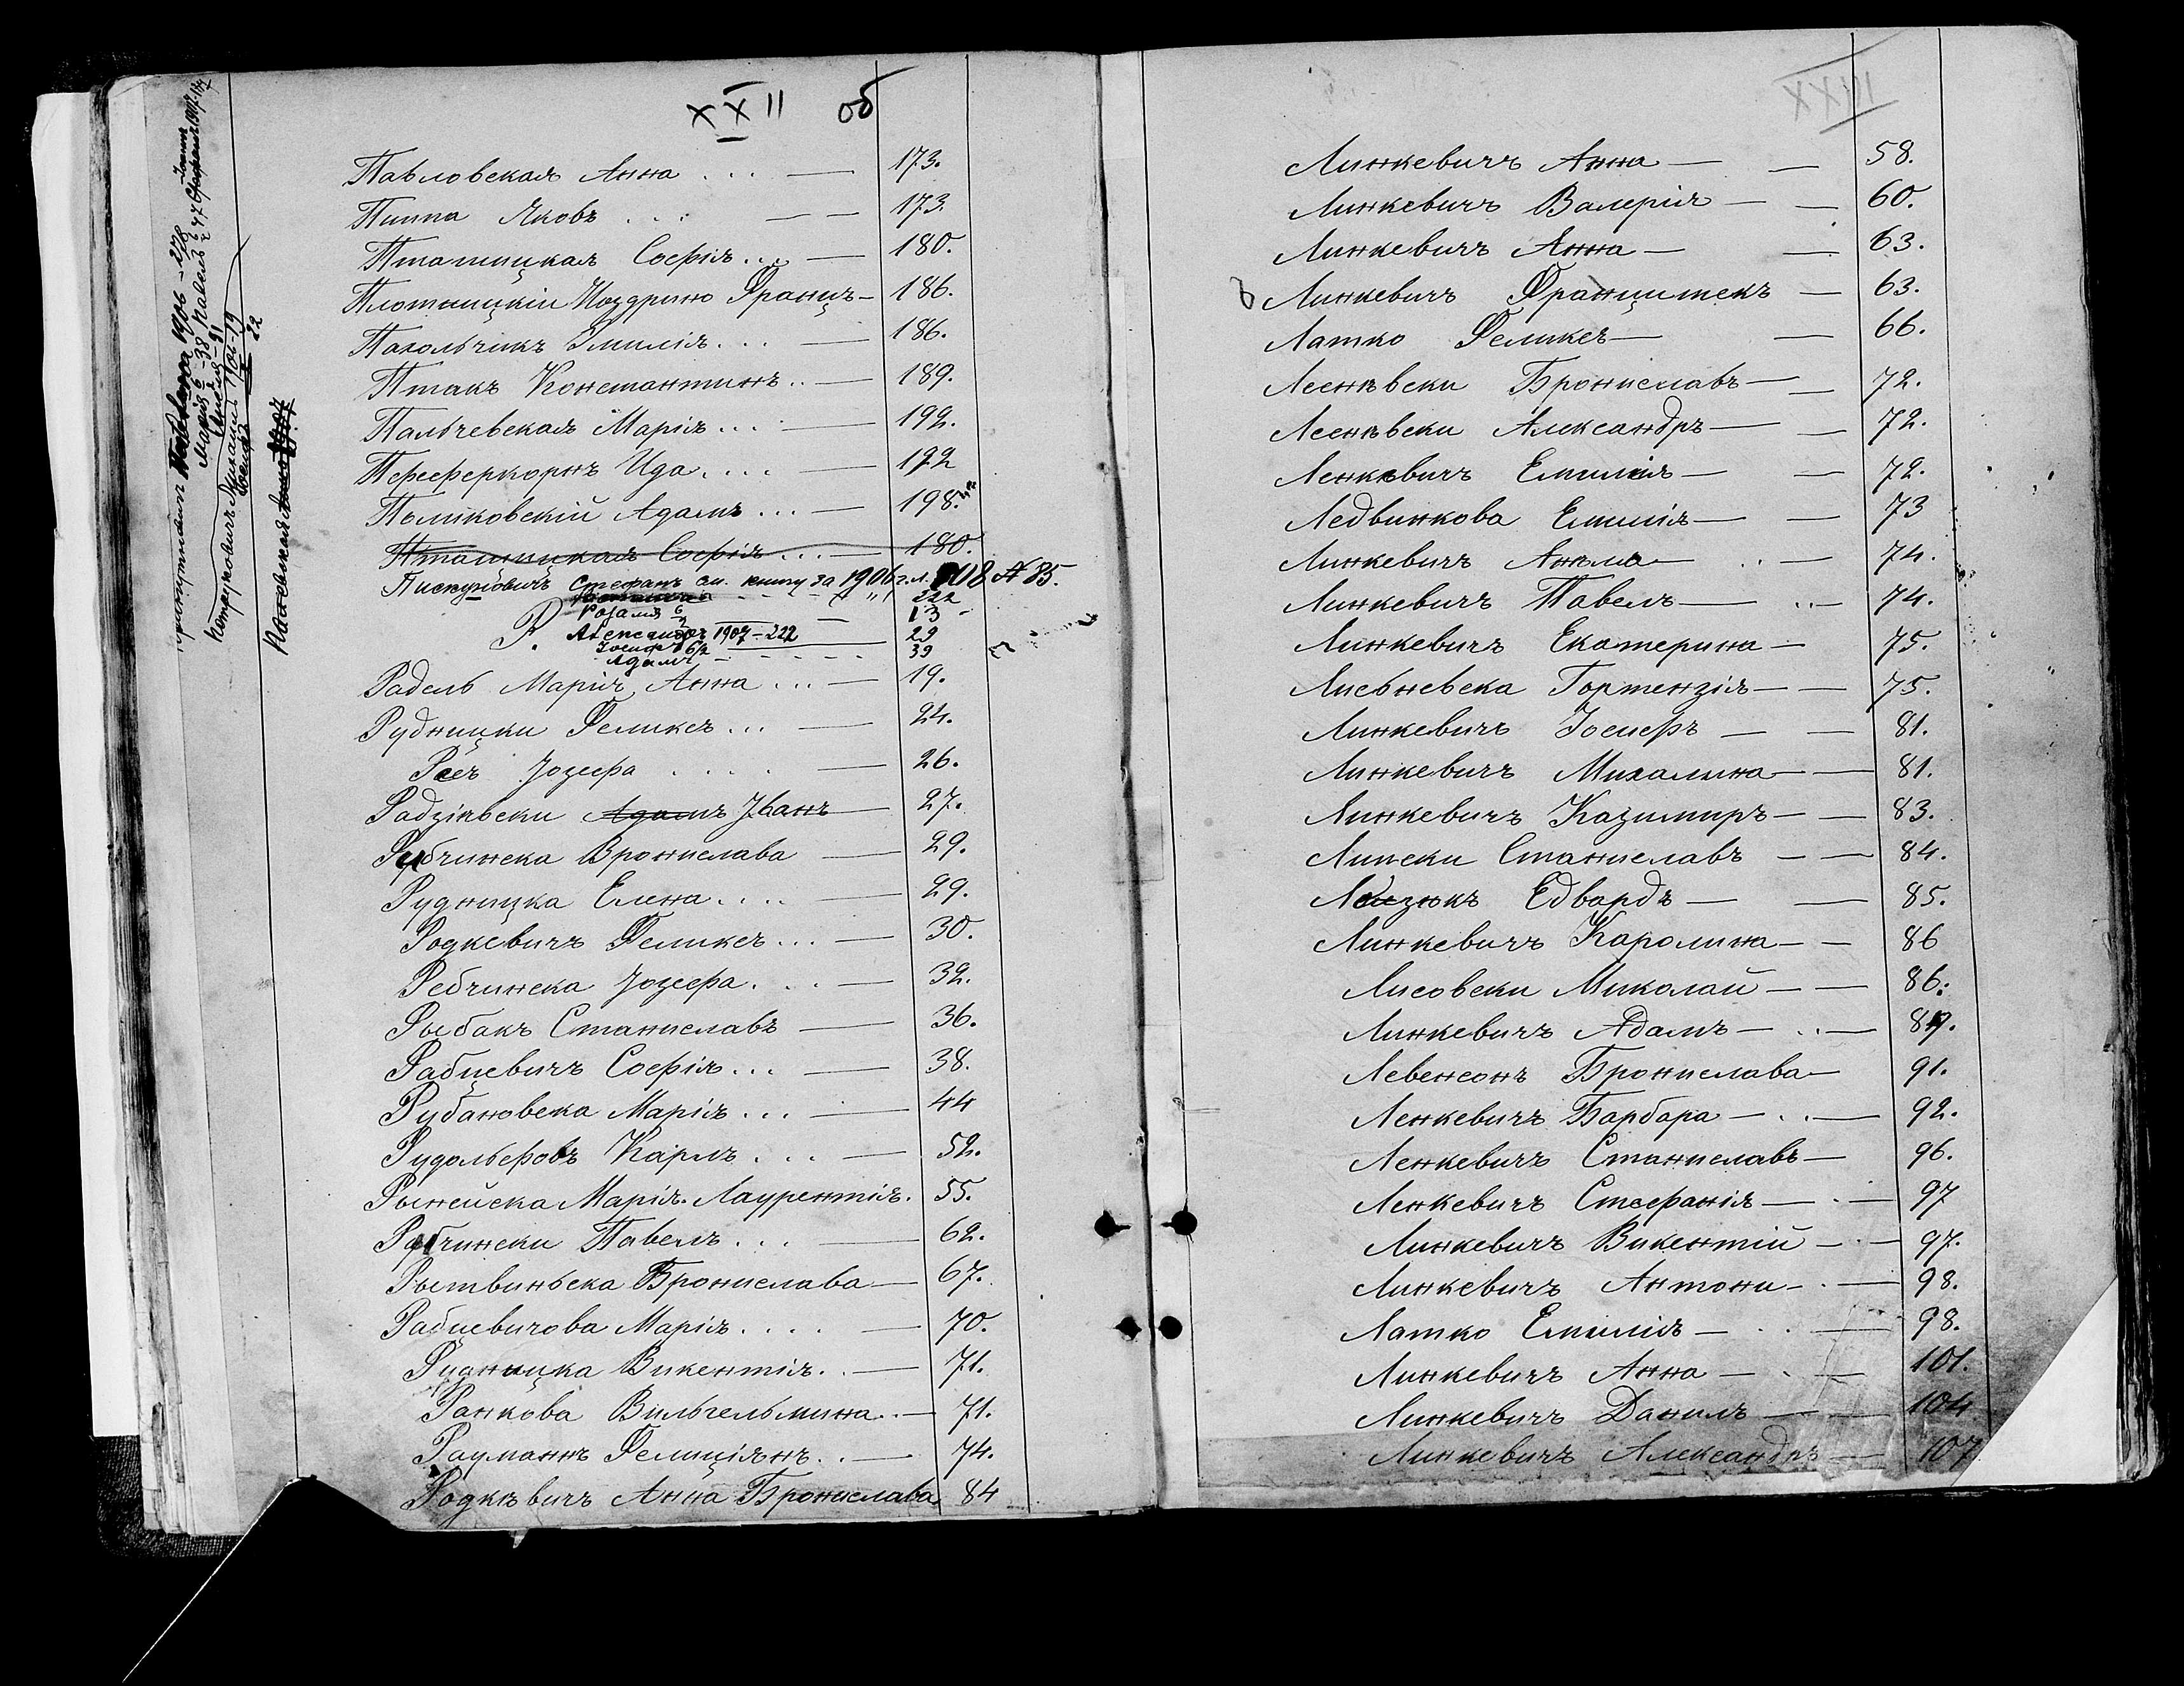 XXII об
Павловская Анна . . . — 173.
Пиппа Яковъ . . . — — 173.
Пташицкая Софія . . . — 180.
Плотницкій Ноздрино Францъ — 186.
Пахольчикъ Эмилія . . . — 186.
Птакъ Константинъ . . — 189.
Пальчевская Марія . . . — 192.
Переферкорнъ Ида . . . . — 192
Поликовскій Адамъ . . . — 198.
Пташицкая Софія . . . — 180.
Пискуновичъ Стефанъ см. книгу за 1906 г. л. 108 № 85.
222
Розалія — 13
Р. Александръ 1907 — 222 29
Іосифъ
Адамъ — — — 39
Радель Марія Анна . . . — 19.
Рудницки Феликсъ . . . — 24.
Ресъ Јозефа . . . . — 26.
Радзіньски Адамъ Јванъ — 27.
Рубчинска Бронислава — 29.
Рудницка Елена . . . . — 29.
Родкевичъ Феликсъ . . . — 30.
Ребчинска Јозефа . . . — 32.
Рыбакъ Станиславъ — 36.
Рабцевичъ Софія . . . — 38.
Рубановска Марія . . . — 44
Рудольфовъ Карлъ . . . — 52.
Рынейска Марія. Лаурентія. 55.
Рубчински Павелъ . . . — 62.
Рытвиньска Бронислава — 67.
Рабцевичова Марія . . . . — 70.
Рудницка Викентія . . — 71.
Ранкова Вильгельмина . . — 71.
Рауманнъ Феликіянъ . . — 74.
Родкѣвичъ Анна Бронислава 84
XXIII
Линкевичъ Анна — — 58.
Линкевичъ Валерія — — 60.
Линкевичъ Анна — — 63.
Линкевичъ Францишекъ — 63.
Латко Феликсъ — — 66.
Лесньвски Брониславъ — — 72.
Лесньвски Александръ — — 72.
Ленкевичъ Емилія — — 72.
Ледвинкова Емилія — — 73
Линкевичъ Анъла — . . — 74.
Линкевичъ Павелъ — . . — 74.
Линкевичъ Екатерина — 75.
Лисьневска Гортензія — — 75.
Линкевичъ Јосифъ — — 81.
Линкевичъ Михалина — — 81.
Линкевичъ Казимиръ — — 83.
Липски Станиславъ — — 84.
Лейзюкъ Едвардъ — — 85.
Линкевичъ Каролина — — 86
Лисовски Миколай — — 86.
Линкевичъ Адамъ — . . — 87.
Левенсонъ Бронислава — 91.
Ленкевичъ Барбара — . . — 92.
Ленкевичъ Станиславъ — 96.
Ленкевичъ Стефанія — . — 97
Линкевичъ Викентій — . — 97.
Линкевичъ Антони — . — 98.
Латко Емилія — . . — 98.
Линкевичъ Анна — . — 101.
Линкевичъ Данилъ — — 104
Линкевичъ Александръ — 107